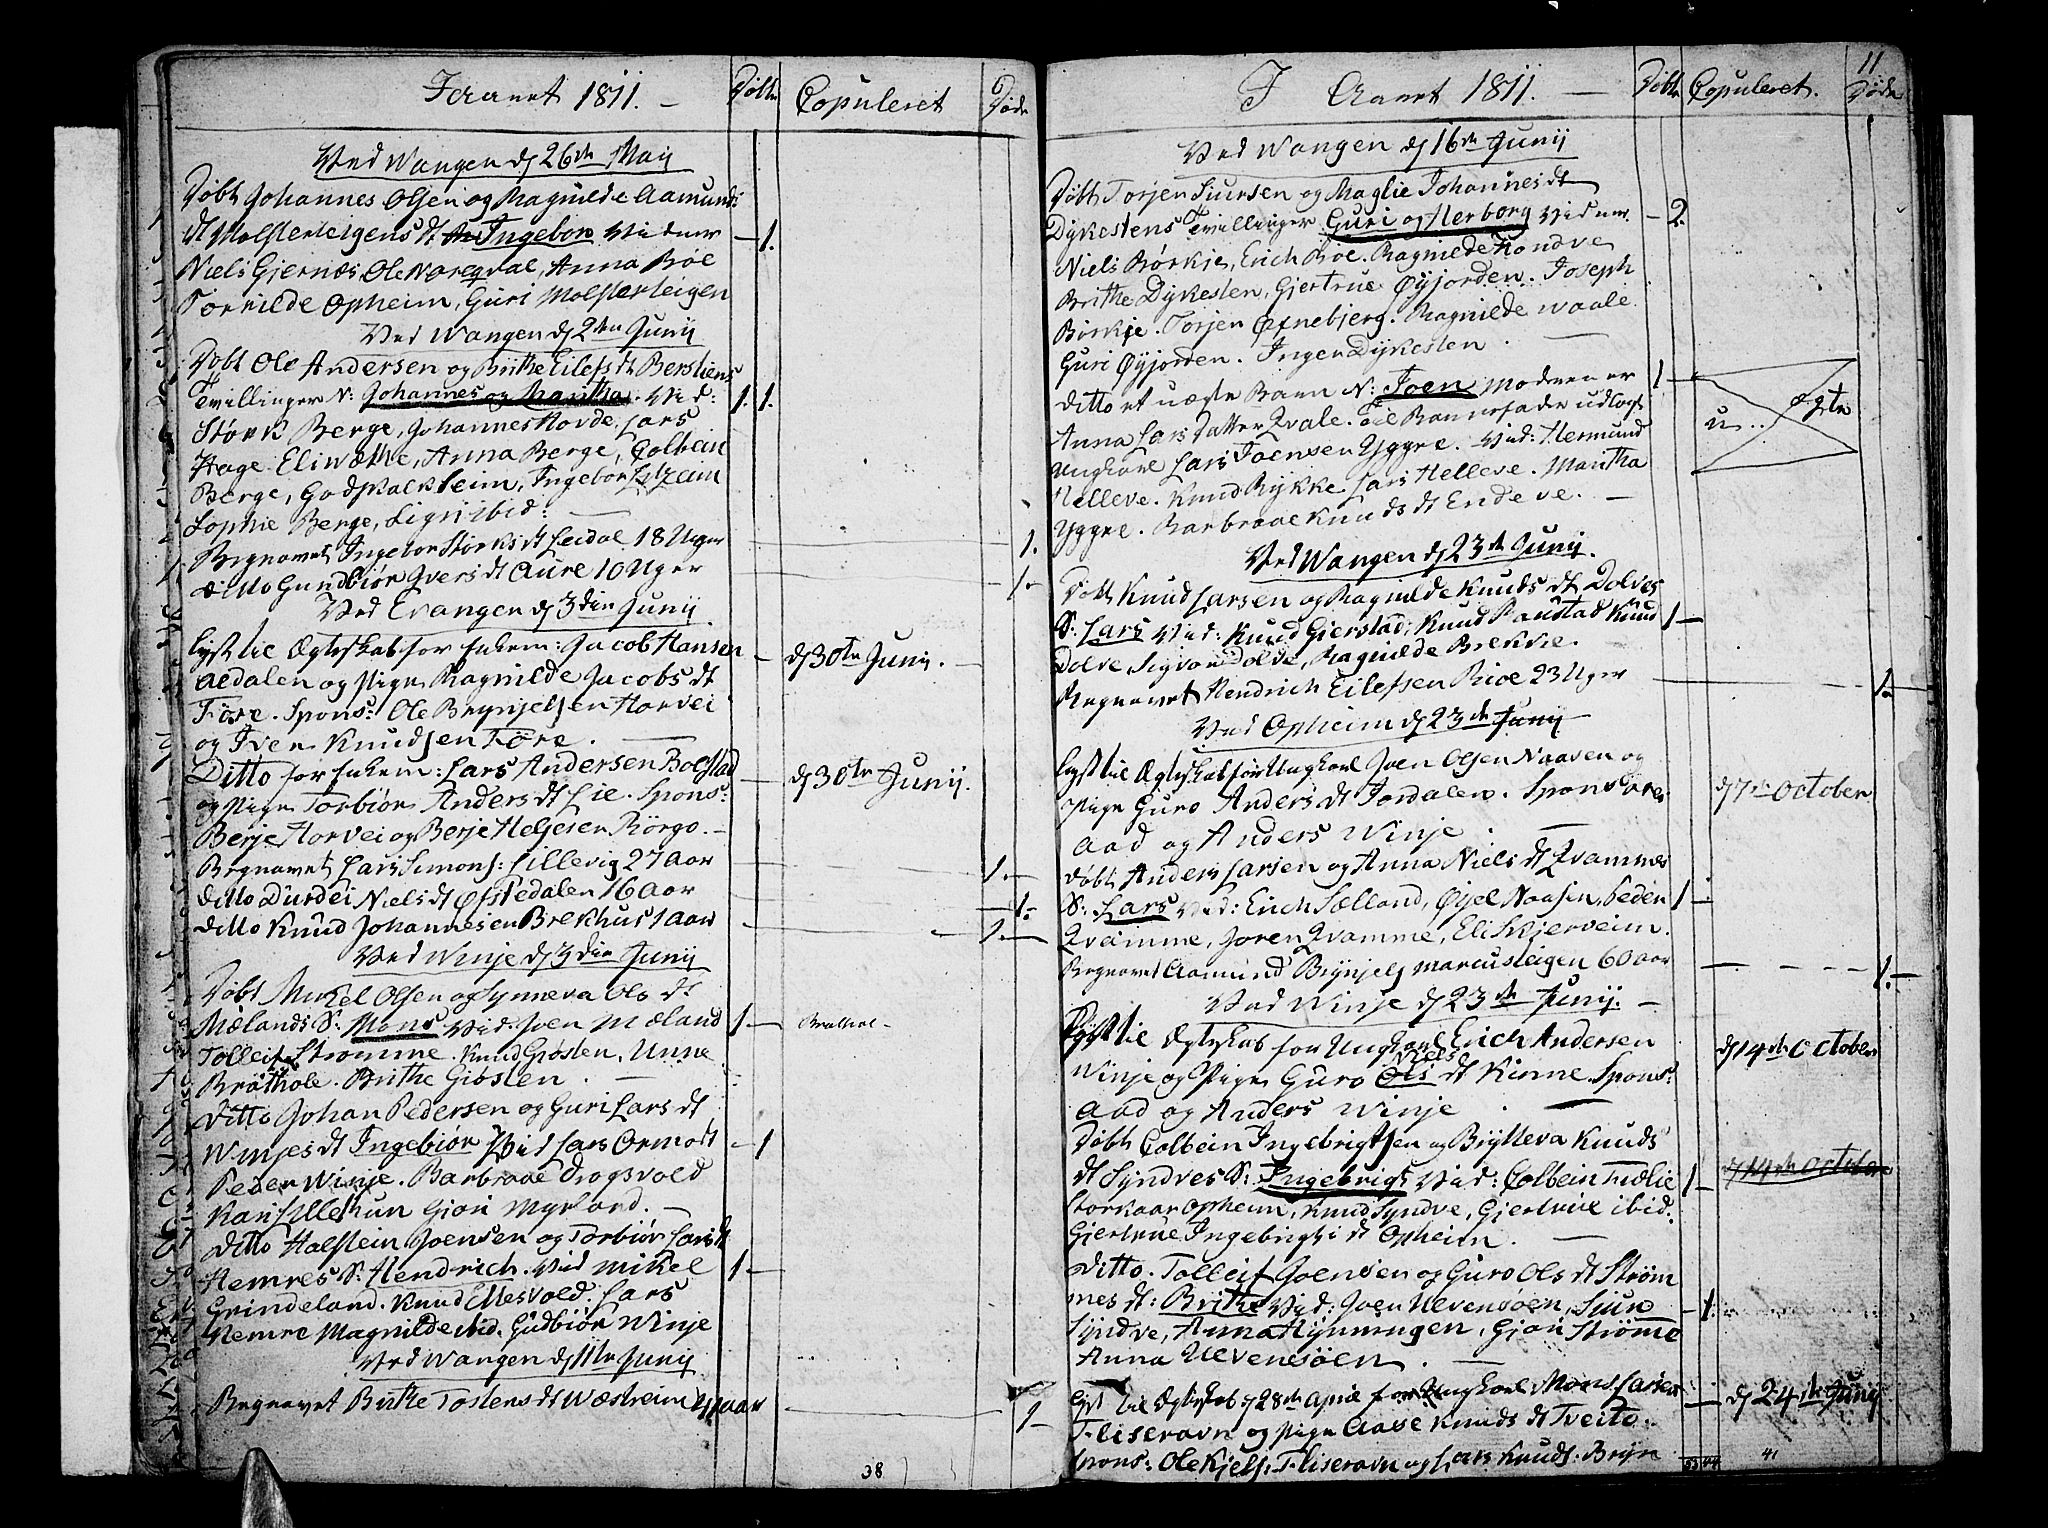 I Aaret 1811. Døbte Copuleret Døde
Ved Wangen d 26de Maij
Døbt Johannes Olsen og Ragnilde Aamunds
dt Molsterteigens dt Ingebor Vidner 1.
Niels Gjernæs, Ole Naaqval, Anna Bøe
Torvilde Opheim, Guri Molsterteigen
Ved Wangen d 2den Junij
Døbt Ole Andersen og Brithe Eilefs dt Berstiens
Tvillinger N: Johannes og Martha. Vid: 1. 1.
Størk Berge, Johannes Horde, Lars
Hage. Eliwethe, Anna Berge, Golbein
Berge, God Skalkleim, Ingebor
Sophie Berge, Sigri ibid:
Begravet Ingebor Størks dt Leidal 18 Uger 1.
ditto Gundbiør Ivers dt Aure 10 Uger 1.
Ved Evangen d 3die Junij
Lyst til Ægteskab for Enkem: Jacob Hansen d 30te Junij.
Aedalen og Pige Ragnilde Jacobs dt
Føre. Spons: Ole Brynjelsen Horvei
og Iver Knudsen Føre.
Ditto for Enkem: Lars Andersen Bolstad d 30te Junij.
og Pige Torbiør Anders dt Lie. Spons:
Berje Horvei og Berje Helgesen Rörgo.
Begravet Lars Simons: Lillevig 27 Aar 1.
ditto Durdei Niels dt Øfstedalen 16 Aar 1.
ditto Knud Johannesen Brekhus 1 Aar 1.
Ved Winje d 3die Junij
Døbt Mikel Olsen og Synneva Ols dt
Mælands S: Mons Vid: Joen Mæland 1
Tolleif Strømme. Knud Giøsten, Unne
Bråthole. Brithe Giøsten.
ditto Johan Pedersen og Guri Lars dt
Winjes dt Ingebiør Vid Lars Ormodt 1
Peder Winje. Barbraae Drogsvold
Kari Lillethun Gjøri Myrland.
ditto Halstein Joensen og Torbiør Lars dt
Hemres S: Hendrich. Vid Mikel 1
Grindeland. Knud Ellesvold. Lars
Hemre Magnilde ibid. Gudbiør Winje
Ved Wangen d 11te Junij
Begravet Brithe Tostens dt Wæstreim Aar 1
38
11
I Aaret 1811. Døbte Copuleret. Døde
Ved Wangen d 16de Junij
Døbt Torjer Siursen og Maglie Johannes dt
Dykestens Tvillinger Guri og Herborg Vidner. 2.
Niels Børkje, Erich Boe. Ragnilde Hondve
Brithe Dykesten, Gjertrue Øyjorden. Joseph
Børkje. Torjer Øfnebjerg. Ragnilde Waale
Guri Øyjorden. Inger Dykesten
ditto et uægte Barn N: Joen Moderen er 1 u.. Ægte
Anna Lars Datter Qvale. Til Barnefader udlagt
Ungkarl Lars Joensen Yggre. Vid: Hermund
Helleve. Knud Rykke Lars Helleve. Martha
Yggre. Barbraae Knuds dt Endeve.
Ved Wangen d 23de Junij.
Døbt Knud Larsen og Ragnilde Knuds dt Dolves
S: Lars Vid: Knud Gjerstad, Knud Raustad Knud 1
Dolve, Sigvor Dolve, Ragnilde Brekke.
Begravet Hendrich Eilefsen Rioe 23 Uger 1.
Ved Opheim d 23de Junij
Lyst til Ægteskab for Ungkarl Joen Olsen Naasen og d 7de October
Pige Guro Anders dt Jordalen. Sponsores
Aad og Anders Winje.
døbt Anders Larsen og Anna Niels dt Qvammes
S: Lars Vid: Erich Sælland, Øyel Naasen, Peder 1
Qvamme, Joren Qvamme, Eli Skjerveim.
Begravet Aamund Brynjels Marcusteigen 60 Aar 1.
Ved Winje d 23de Junij.
Lyst til Ægteskab for Ungkarl Erich Andersen d 14de October
Winje og Pige Guro Niels dt Kinne. Spons:
Aad og Anders Winje.
Døbt Colbein Ingebrigtsen og Brytteva Knuds
dt Syndves S: Ingebrigt Vid: Colbein Fidlie 1 d 14de October
Storkaar Opheim, Knud Syndve, Gjertrue ibid.
Gjertrue Ingebrigts dt Opheim.
ditto. Tolleif Joensen og Guro Ols dt Strøm
mes dt: Brithe Vid: Joen Uevensøen, Siur 1.
Syndve, Anna Hynningen, Gjøri Strøme
Anna Uevensøen.
Lyst til Ægteskab d 28de April for Ungkarl Mons Larsen d 24de Junij
Fliseravn og Pige Aase Knuds dt Tveito.
Spons: Ole Kjels: Fliseravn og Lars Knuds: Bryn
41